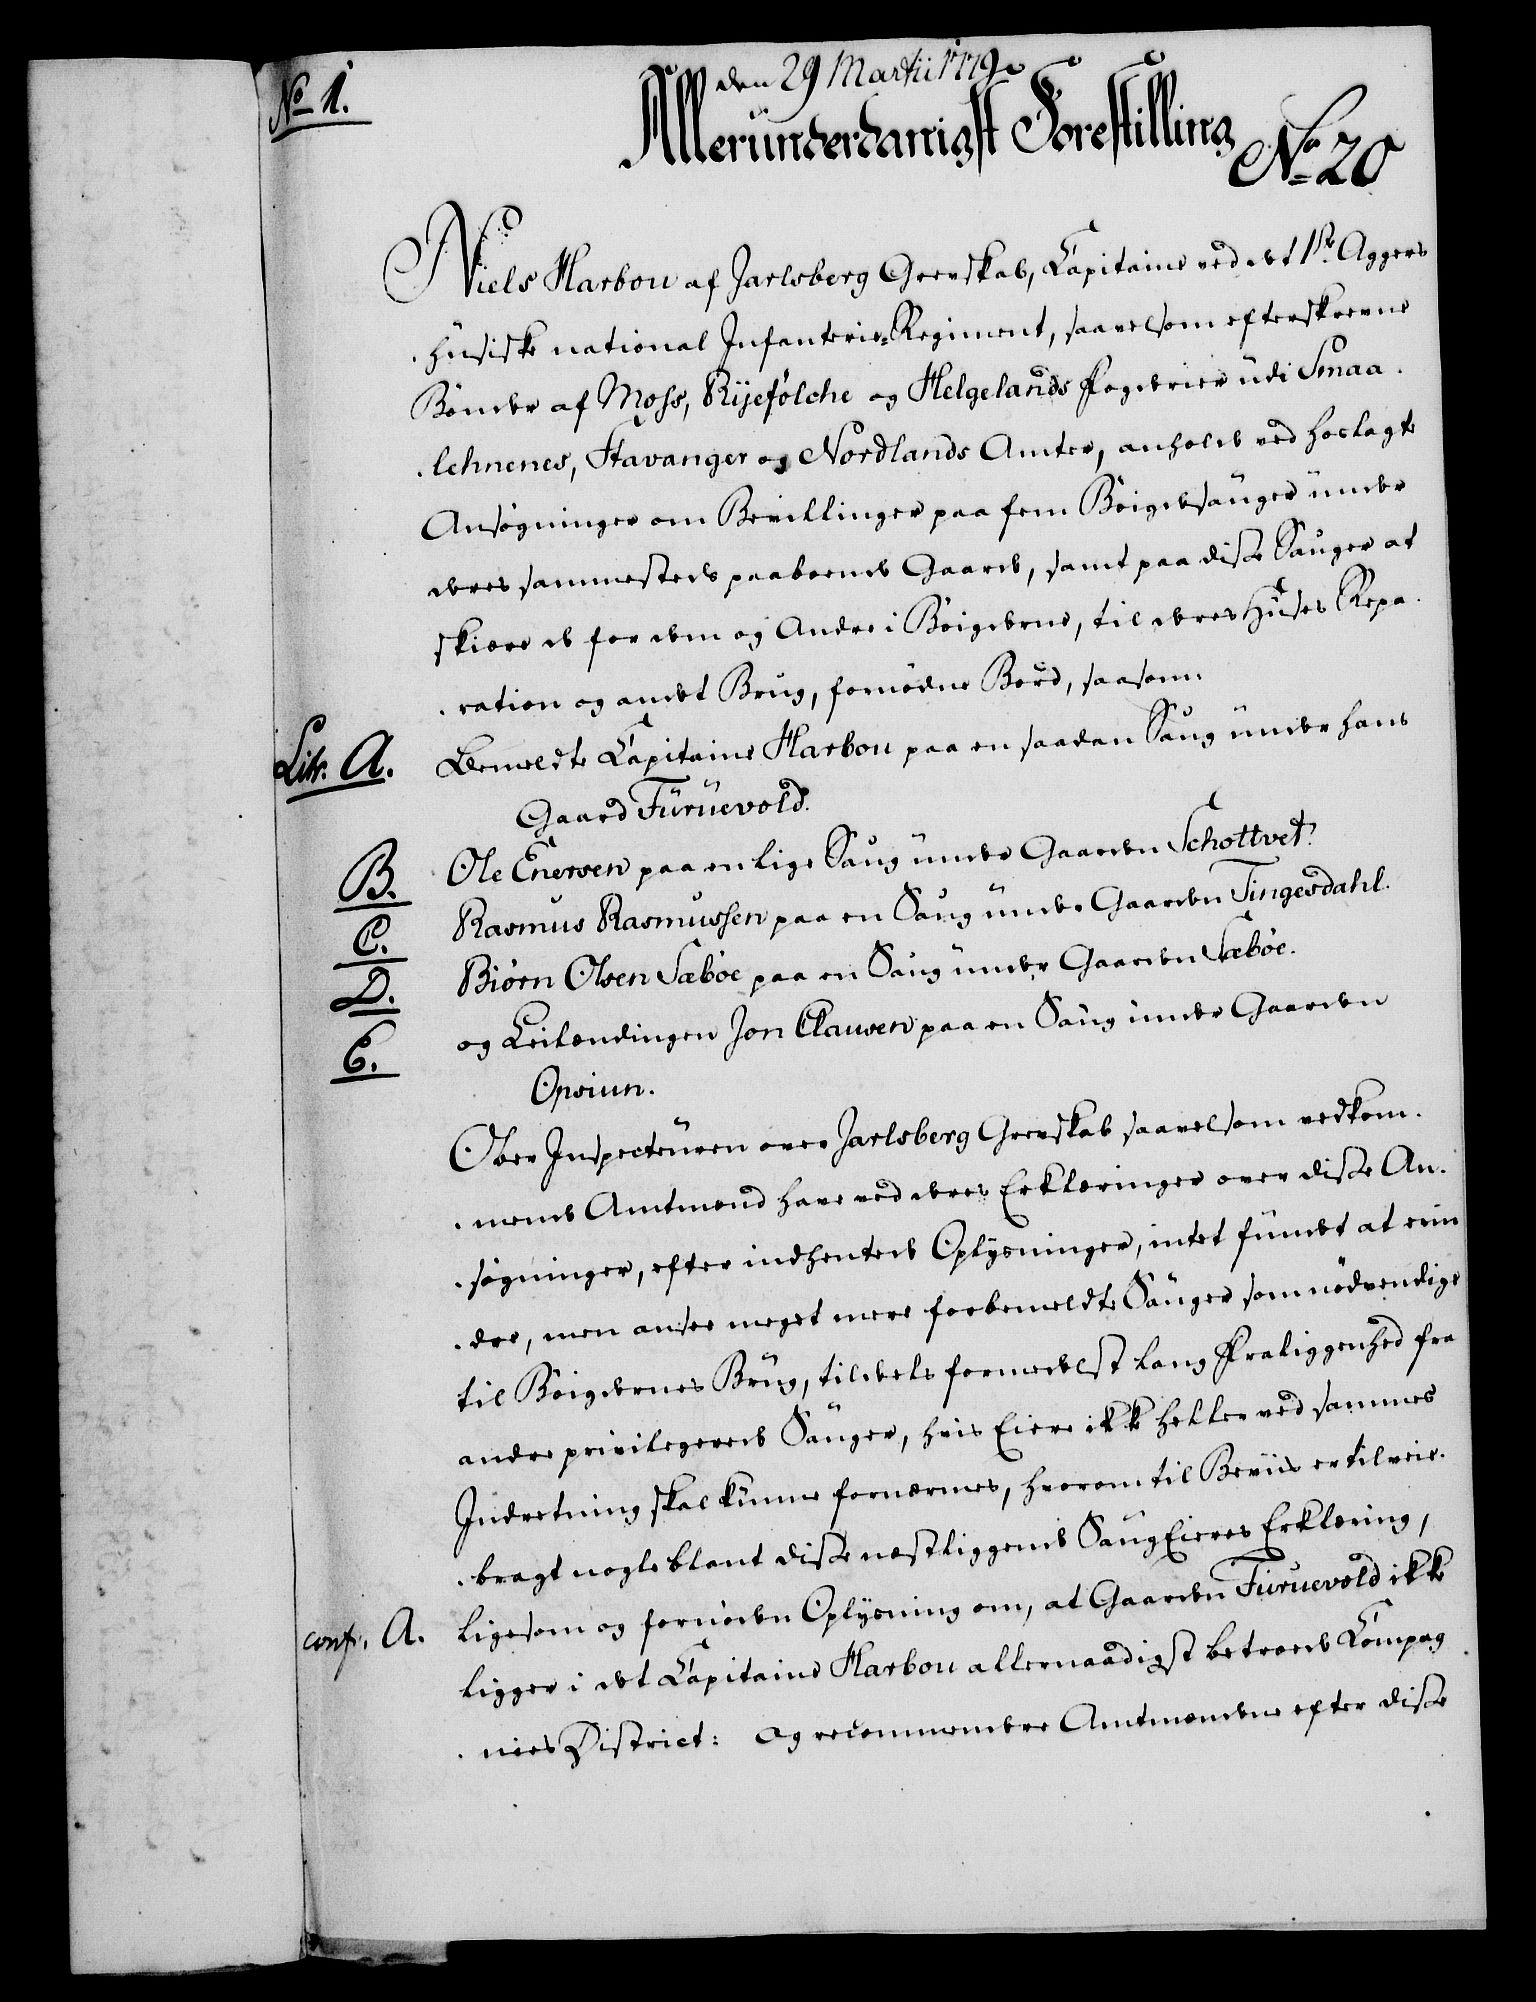 No 1.
den 29 Martii 1779.
Allerunderdanigst Forestilling
No 20
Niels Harbou af Jarlsberg Grevskab, Capitaine ved det 1ste Aggers
huusiske national Infanterie-Regiment, saavelsom efterskrevne
Bönder af Moss, Ryefölche og Helgelands Fogderier udi Smaa
lehnenes, Stavanger og Nordlands Amter, anholde ved hoslagte
Ansögninger om Bevillinger paa fem Böigdesauger under
deres sammesteds paaboende Gaarde, samt paa disse Sauger at
skiære de for dem og Andre i Böigderne, til deres Huses Repa
ration og andet Brug, fornödne Bord, saasom:
Litr. A. Bemeldte Capitaine Harbou paa en saadan Saug under hans
Gaard Furuevold.
B. Ole Enersen paa en lige Saug under Gaarden Schottvet.
C. Rasmus Rasmussen paa en Saug under Gaarden Tingesdahl.
D. Biörn Olsen Sæböe paa en Saug under Gaarden Sæböe.
E. og Leilændingen Jon Clausen paa en Saug under Gaarden
Opsiun.
Over Inspecteuren over Jarlsberg Grevskab saavelsom vedkom
mende Amtmænd have ved deres Erklæringer over disse An
søgninger, efter indhentede Oplysninger, intet fundet at erin
dre, men ansee meget mere forbemeldte Sauger som nödvendige
til Böigdernes Brug, tildeels formedelst lang Fraliggenhed fra
andre privilegerede Sauger, hvis Eiere ikke heller ved sammes
Indretning skal kunne fornærmes, hvorom til Beviis er tilveie
bragt nogle blant disse næstliggende Saug Eieres Erklæring,
conf. A. ligesom og fornöden Oplysning om, at Gaarden Furuevold ikke
ligger i det Capitaine Harbou allernaadigst betroede Compag
nies District: og recommendere Amtmændene efter disse